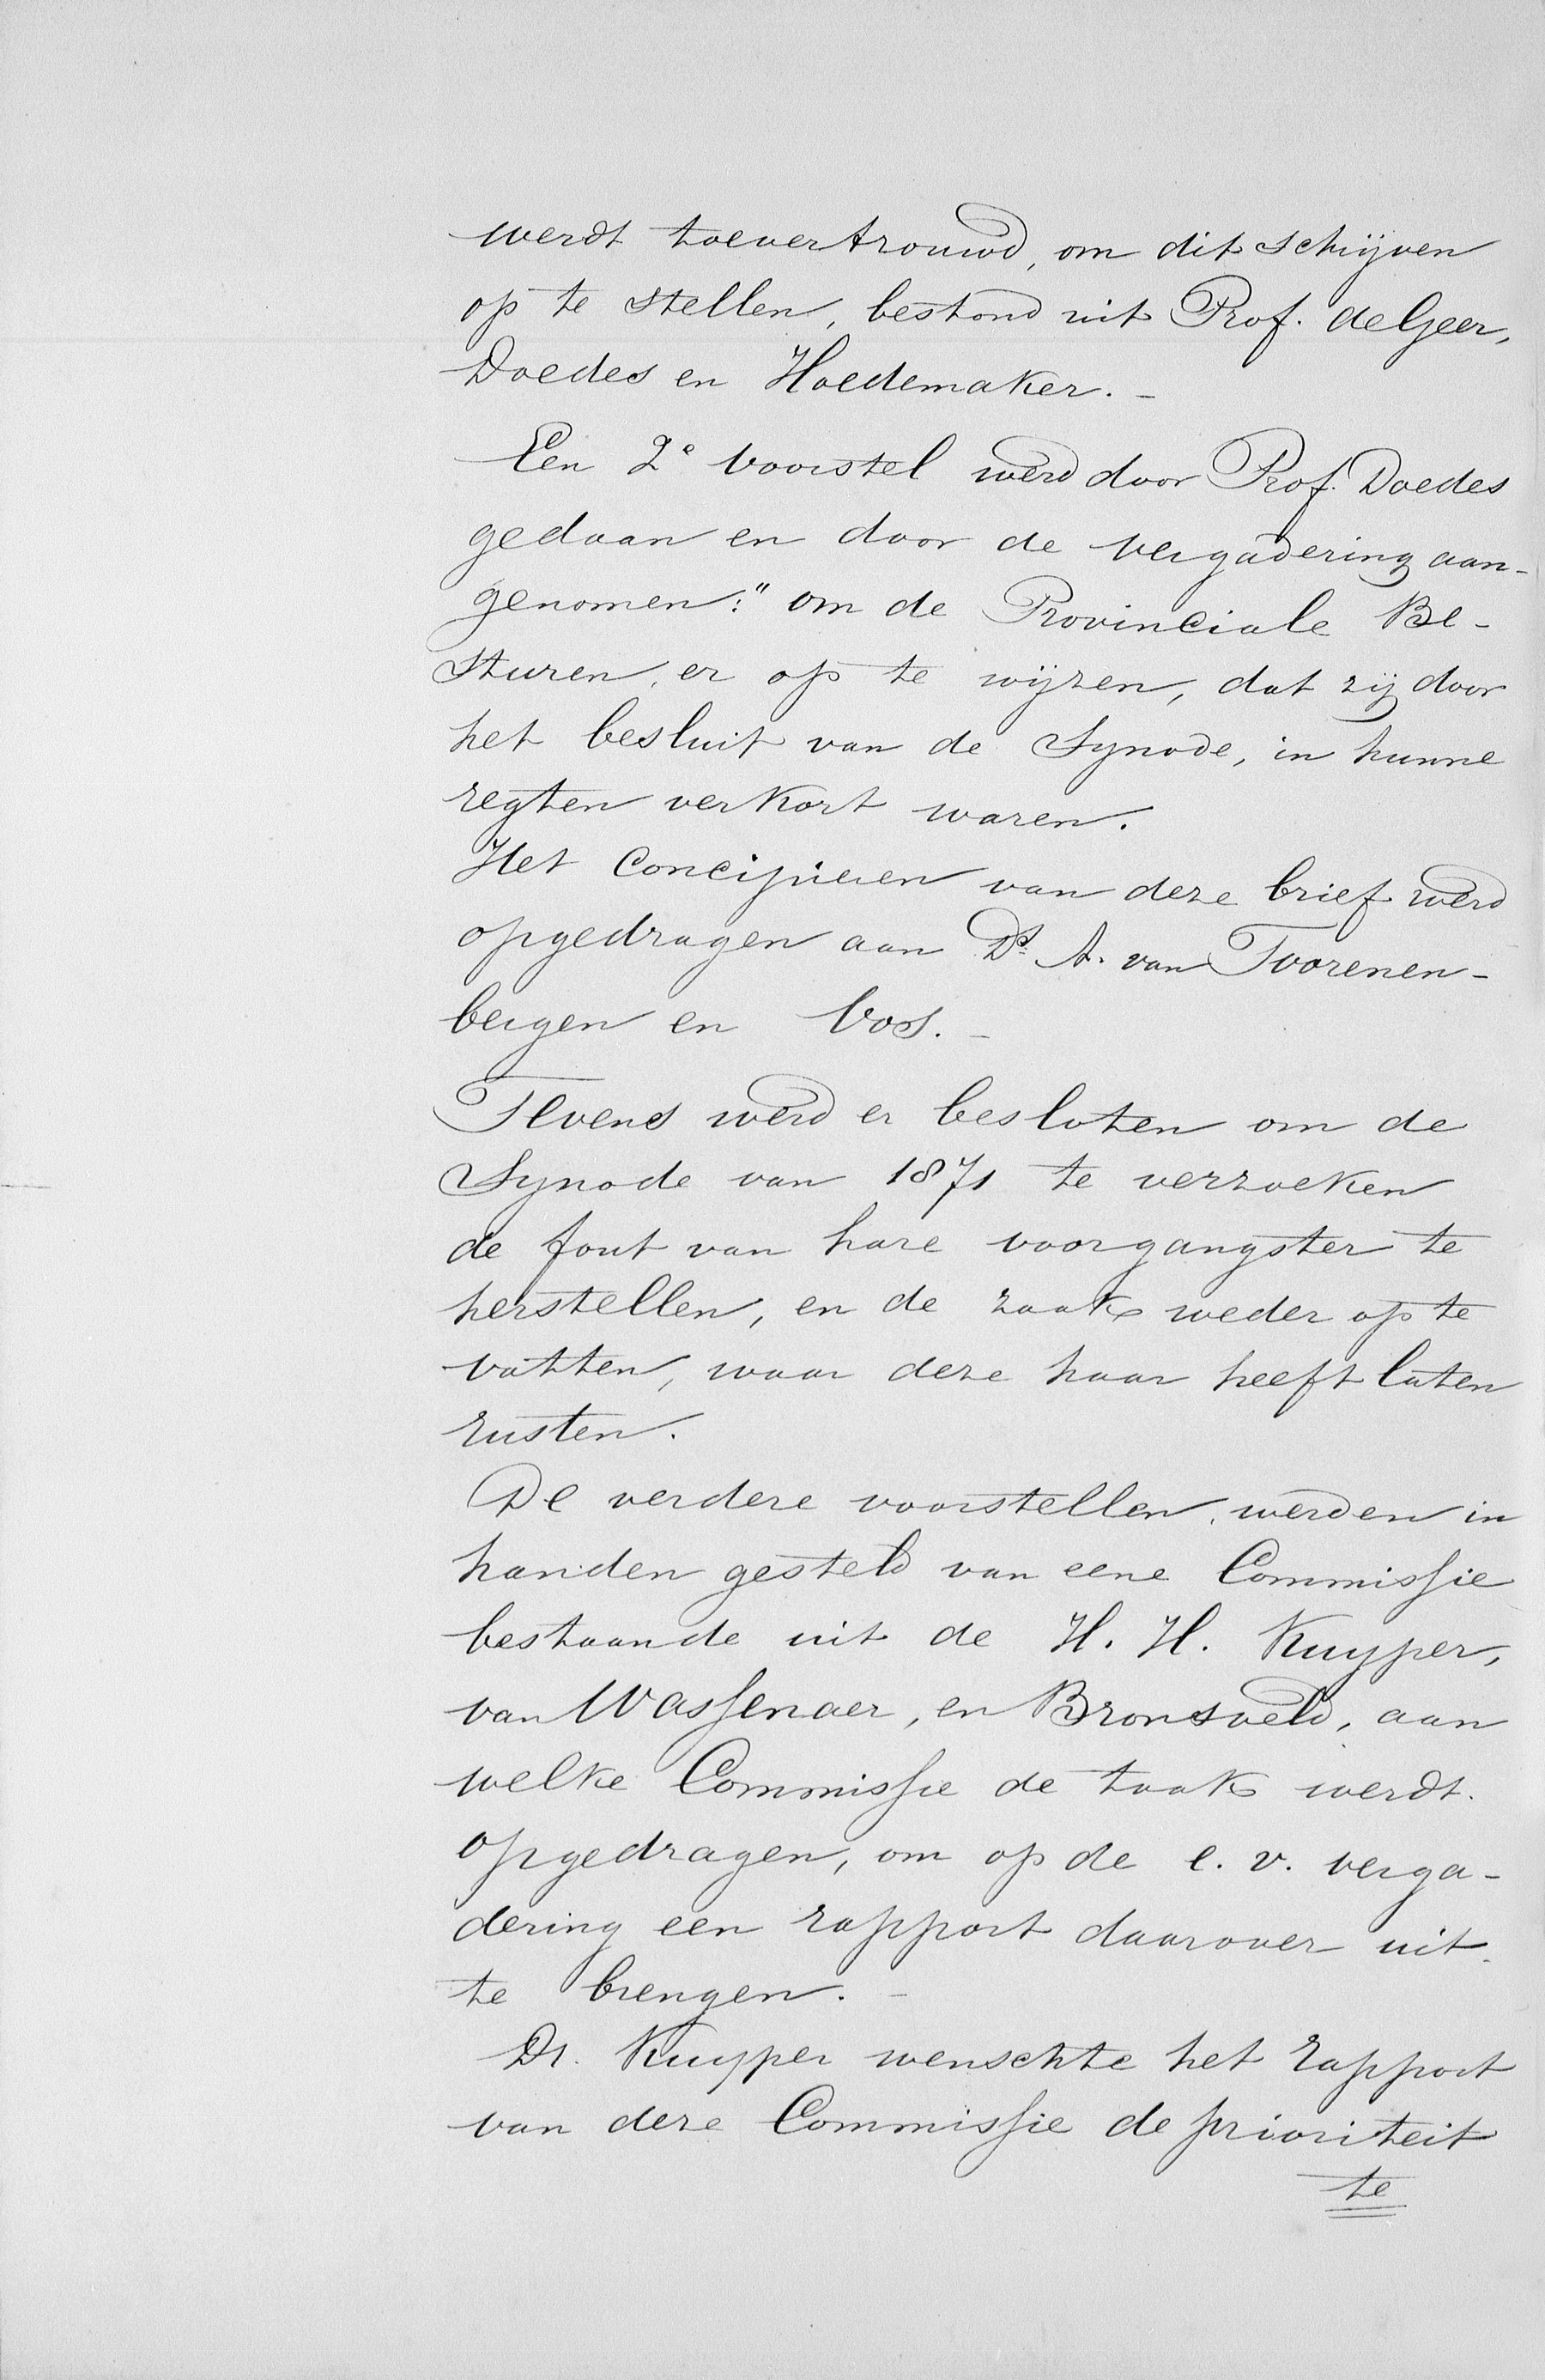 werdt toevertrouwd, om dit schijven
op te stellen, bestond uit Prof. de Geer,
Doedes en Hoedemaker. -
Een 2e voorstel werd door Prof. Doedes
gedaan en door de vergadering aan-
genomen: " om de Provinciale Be-
sturen, er op te wijzen, dat zij door
het besluit van de Synode, in hunne
regten verkort waren.
Het concipieren van deze brief werd
opgedragen aan Ds. A. van Toorenen-
bergen en Vos. -
Tevens werd er besloten om de
Synode van 1871 te verzoeken
de fout van hare voorgangster te
herstellen, en de zaak weder op te
vatten, waar deze haar heeft laten
rusten.
De verdere voorstellen, werden in
handen gesteld van eene Commissie
bestaande uit de H. H. Kuyper,
van Wassenaer, en Bronsveld, aan
welke Commissie de taak werdt.
opgedragen, om op de e. v. verga-
dering een rapport daarover uit
te brengen. -
Dr. Kuyper wenschte het rapport
van deze Commissie de prioriteit
te